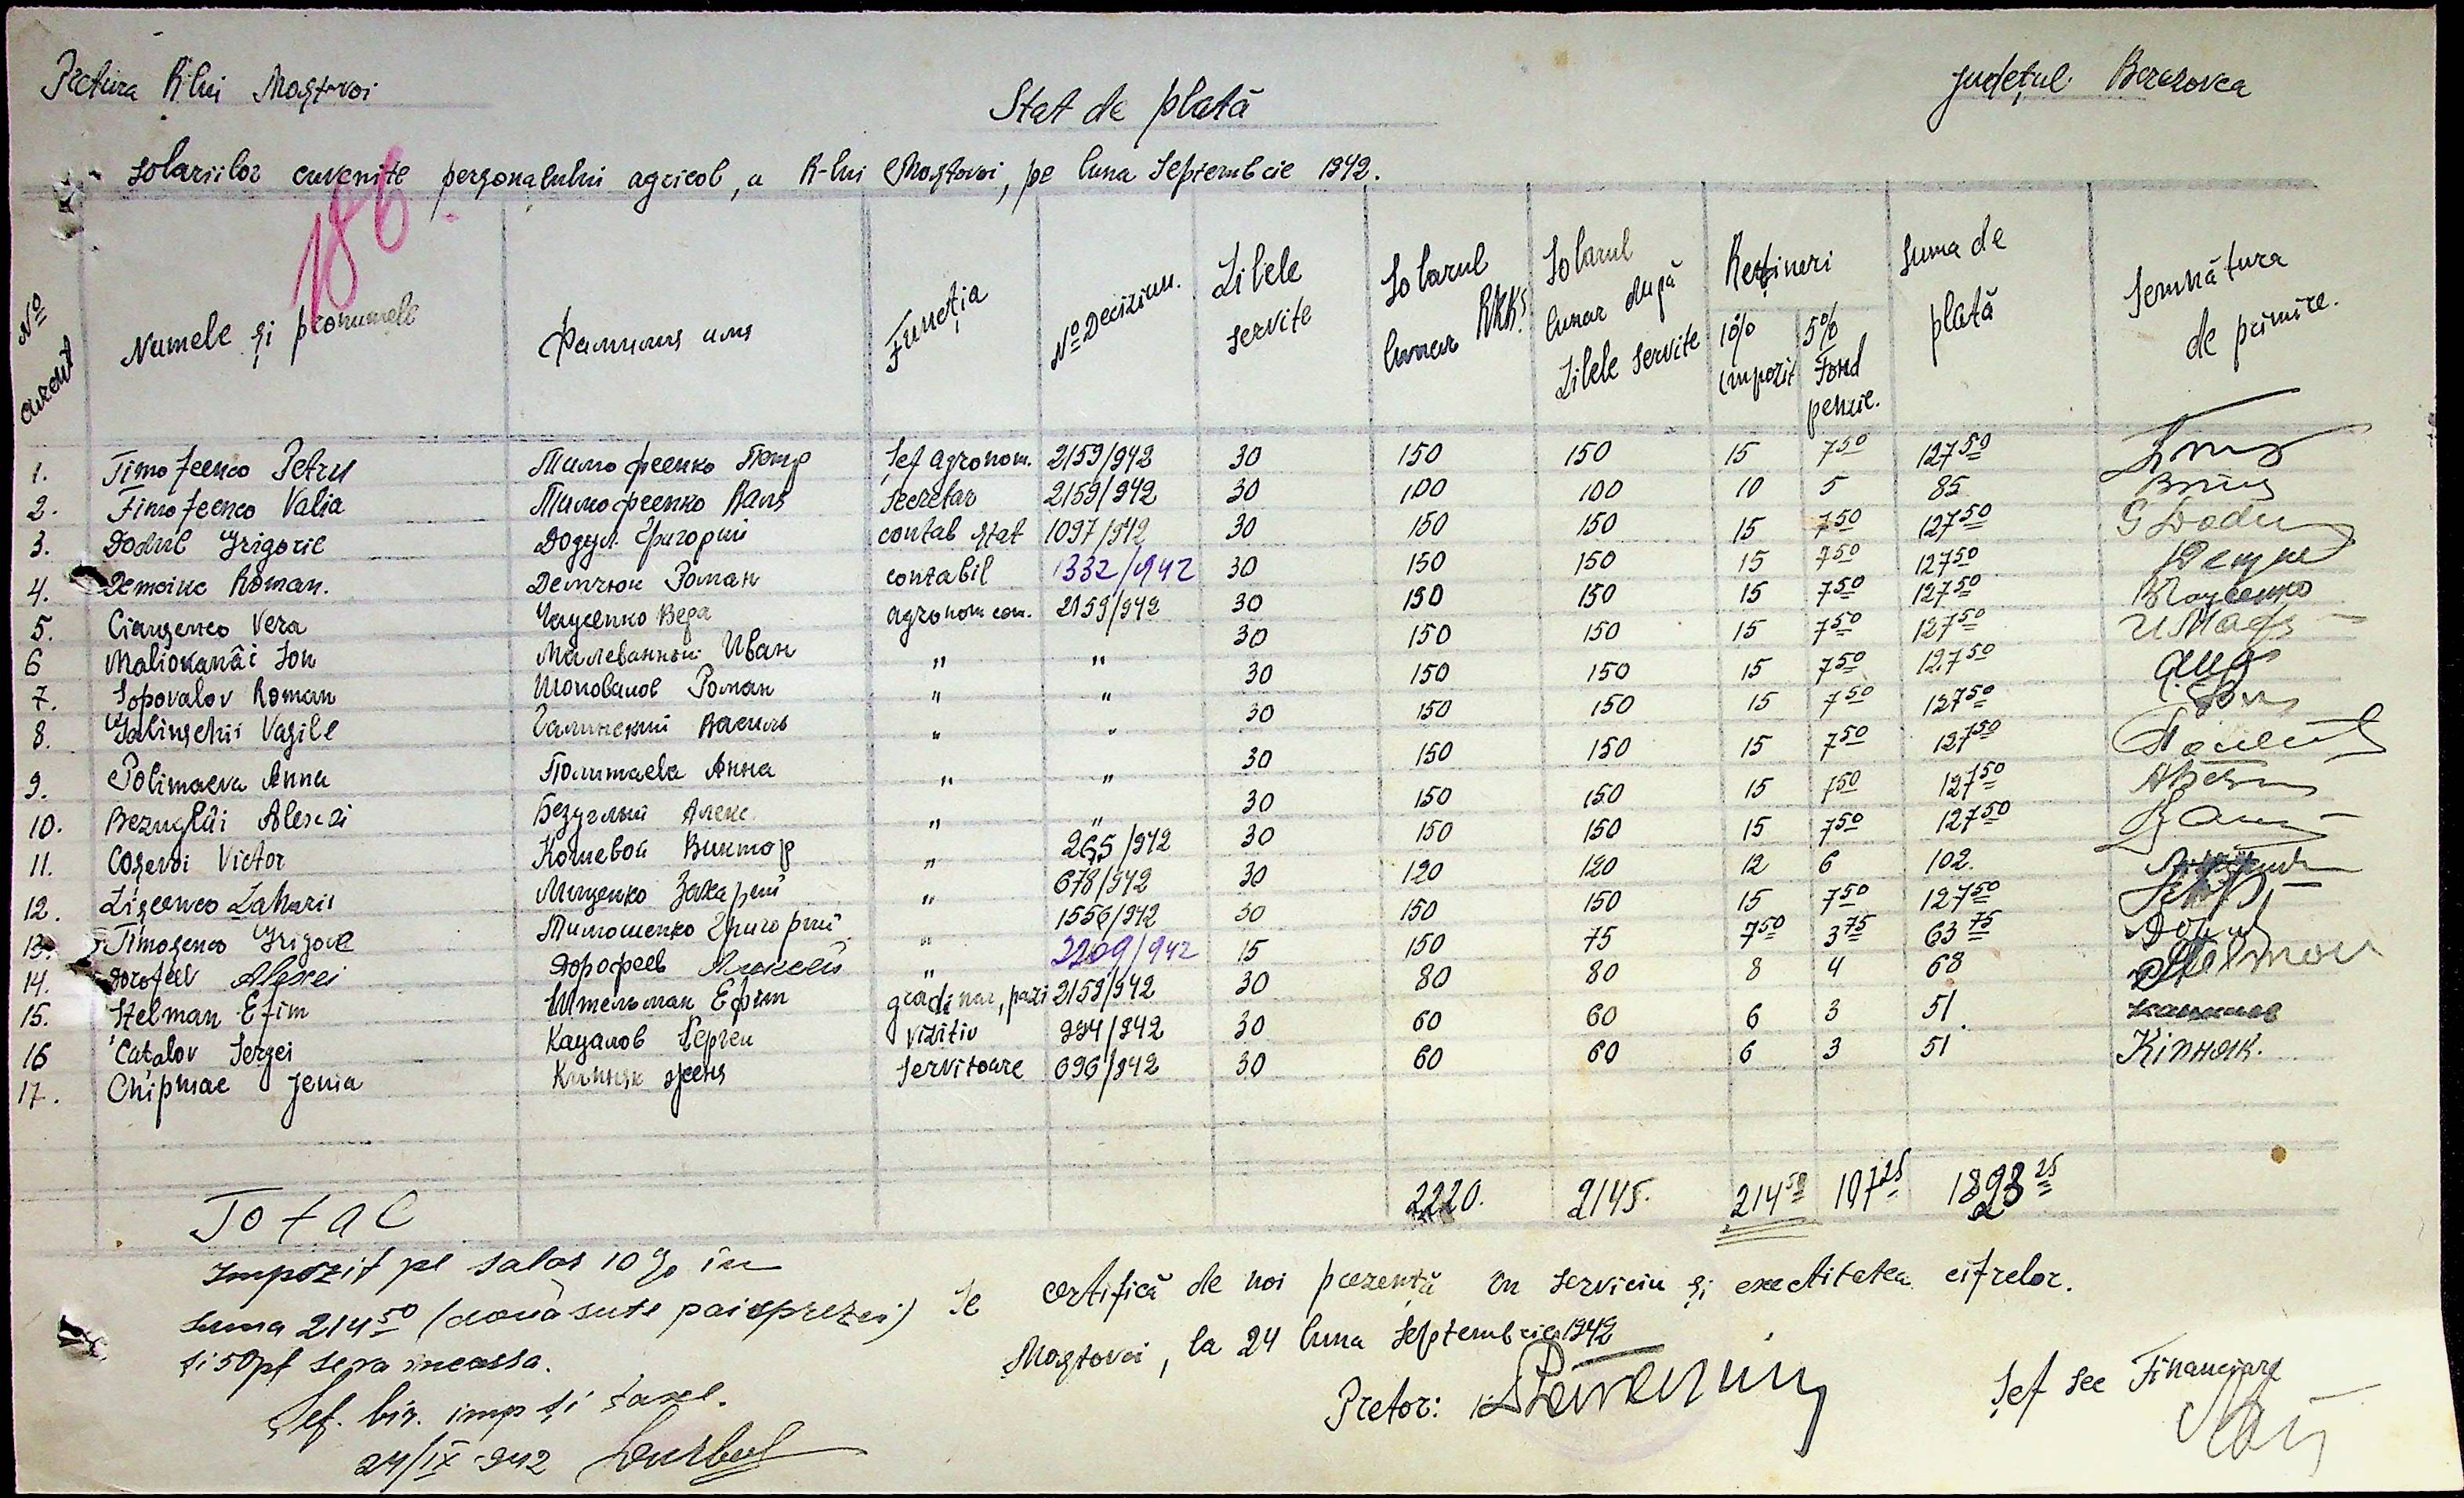 Pretura R-lui Mostovoi
Județul Berezovca
Stat de plată
solariilor cuvenite personalului agricol, a R-lui Mostovoi, pe luna Septembrie 1942.
186
No curent | Numele și pronumele | Фамилия имя | Funcția | No Deciziun. | Zilele servite | Solarul lunar RKKS | Solarul lunar după Zilele servite | Rețineri 10% impozit | 5% Fond pensie. | Suma de plată | Semnătura de primire.
1. Timofeenco Petru Тимофеенко Петр Șef agronom. 2159/942 30 150 150 15 7 50 127 50
2. Timofeenco Valia Тимофеенко Валя Secretar 2159/942 30 100 100 10 5 85
3. Dodul Grigorie Додул Григорий contab stat 1097/942 30 150 150 15 7 50 127 50 G Dodu
4. Demciuc Roman. Демчюк Роман contabil 1332/942 30 150 150 15 7 50 127 50
5. Ciausenco Vera Чаусенко Вера agronom com. 2159/942 30 150 150 15 7 50 127 50
6 Maliovanâi Ion Малеванный Иван " " 30 150 150 15 7 50 127 50
7. Șopovalov Roman Шоповалов Роман " " 30 150 150 15 7 50 127 50
8. Galinschii Vasile Галинский Василь " " 30 150 150 15 7 50 127 50
9. Polimaeva Anna Полимаева Анна " " 30 150 150 15 7 50 127 50
10. Bezuglâi Alexei Безуглый Алекс. " " 30 150 150 15 7 50 127 50
11. Coșevoi Victor Кошевой Виктор " 265/942 30 150 150 15 7 50 127 50
12. Lișcenco Zaharii Лищенко Захарий " 678/942 30 120 120 12 6 102.
13. Timoșenco Grigore Тимошенко Григорий " 1556/942 30 150 150 15 7 50 127 50
14. Dorofeev Alexei Дорофеев Алексей " 2209/942 15 150 75 7 50 3 75 63 75
15. Stelman Efim Штельман Ефим gradinar, pazi 2159/942 30 80 80 8 4 68 Stelman
16 Catalov Sergei Кацалов Сергей vizitiu 934/942 30 60 60 6 3 51.
17. Chipniac Jenia Кипняк Женя Servitoare 696/942 30 60 60 6 3 51 Кіпняк.
Total 2220. 2145. 214 50 107 25 1823 25
Impozit pe salar 10% în
suma 214 50 (două sute paisprezei)
și 50 pf se va incassa.
Șef. bir. imp și taxe.
24/IX-942
Se certifică de noi prezența în serviciu și exectitatea cifrelor.
Mostovoi, la 24 luna Septembrie 1942
Pretor:
Șef sec Financiare